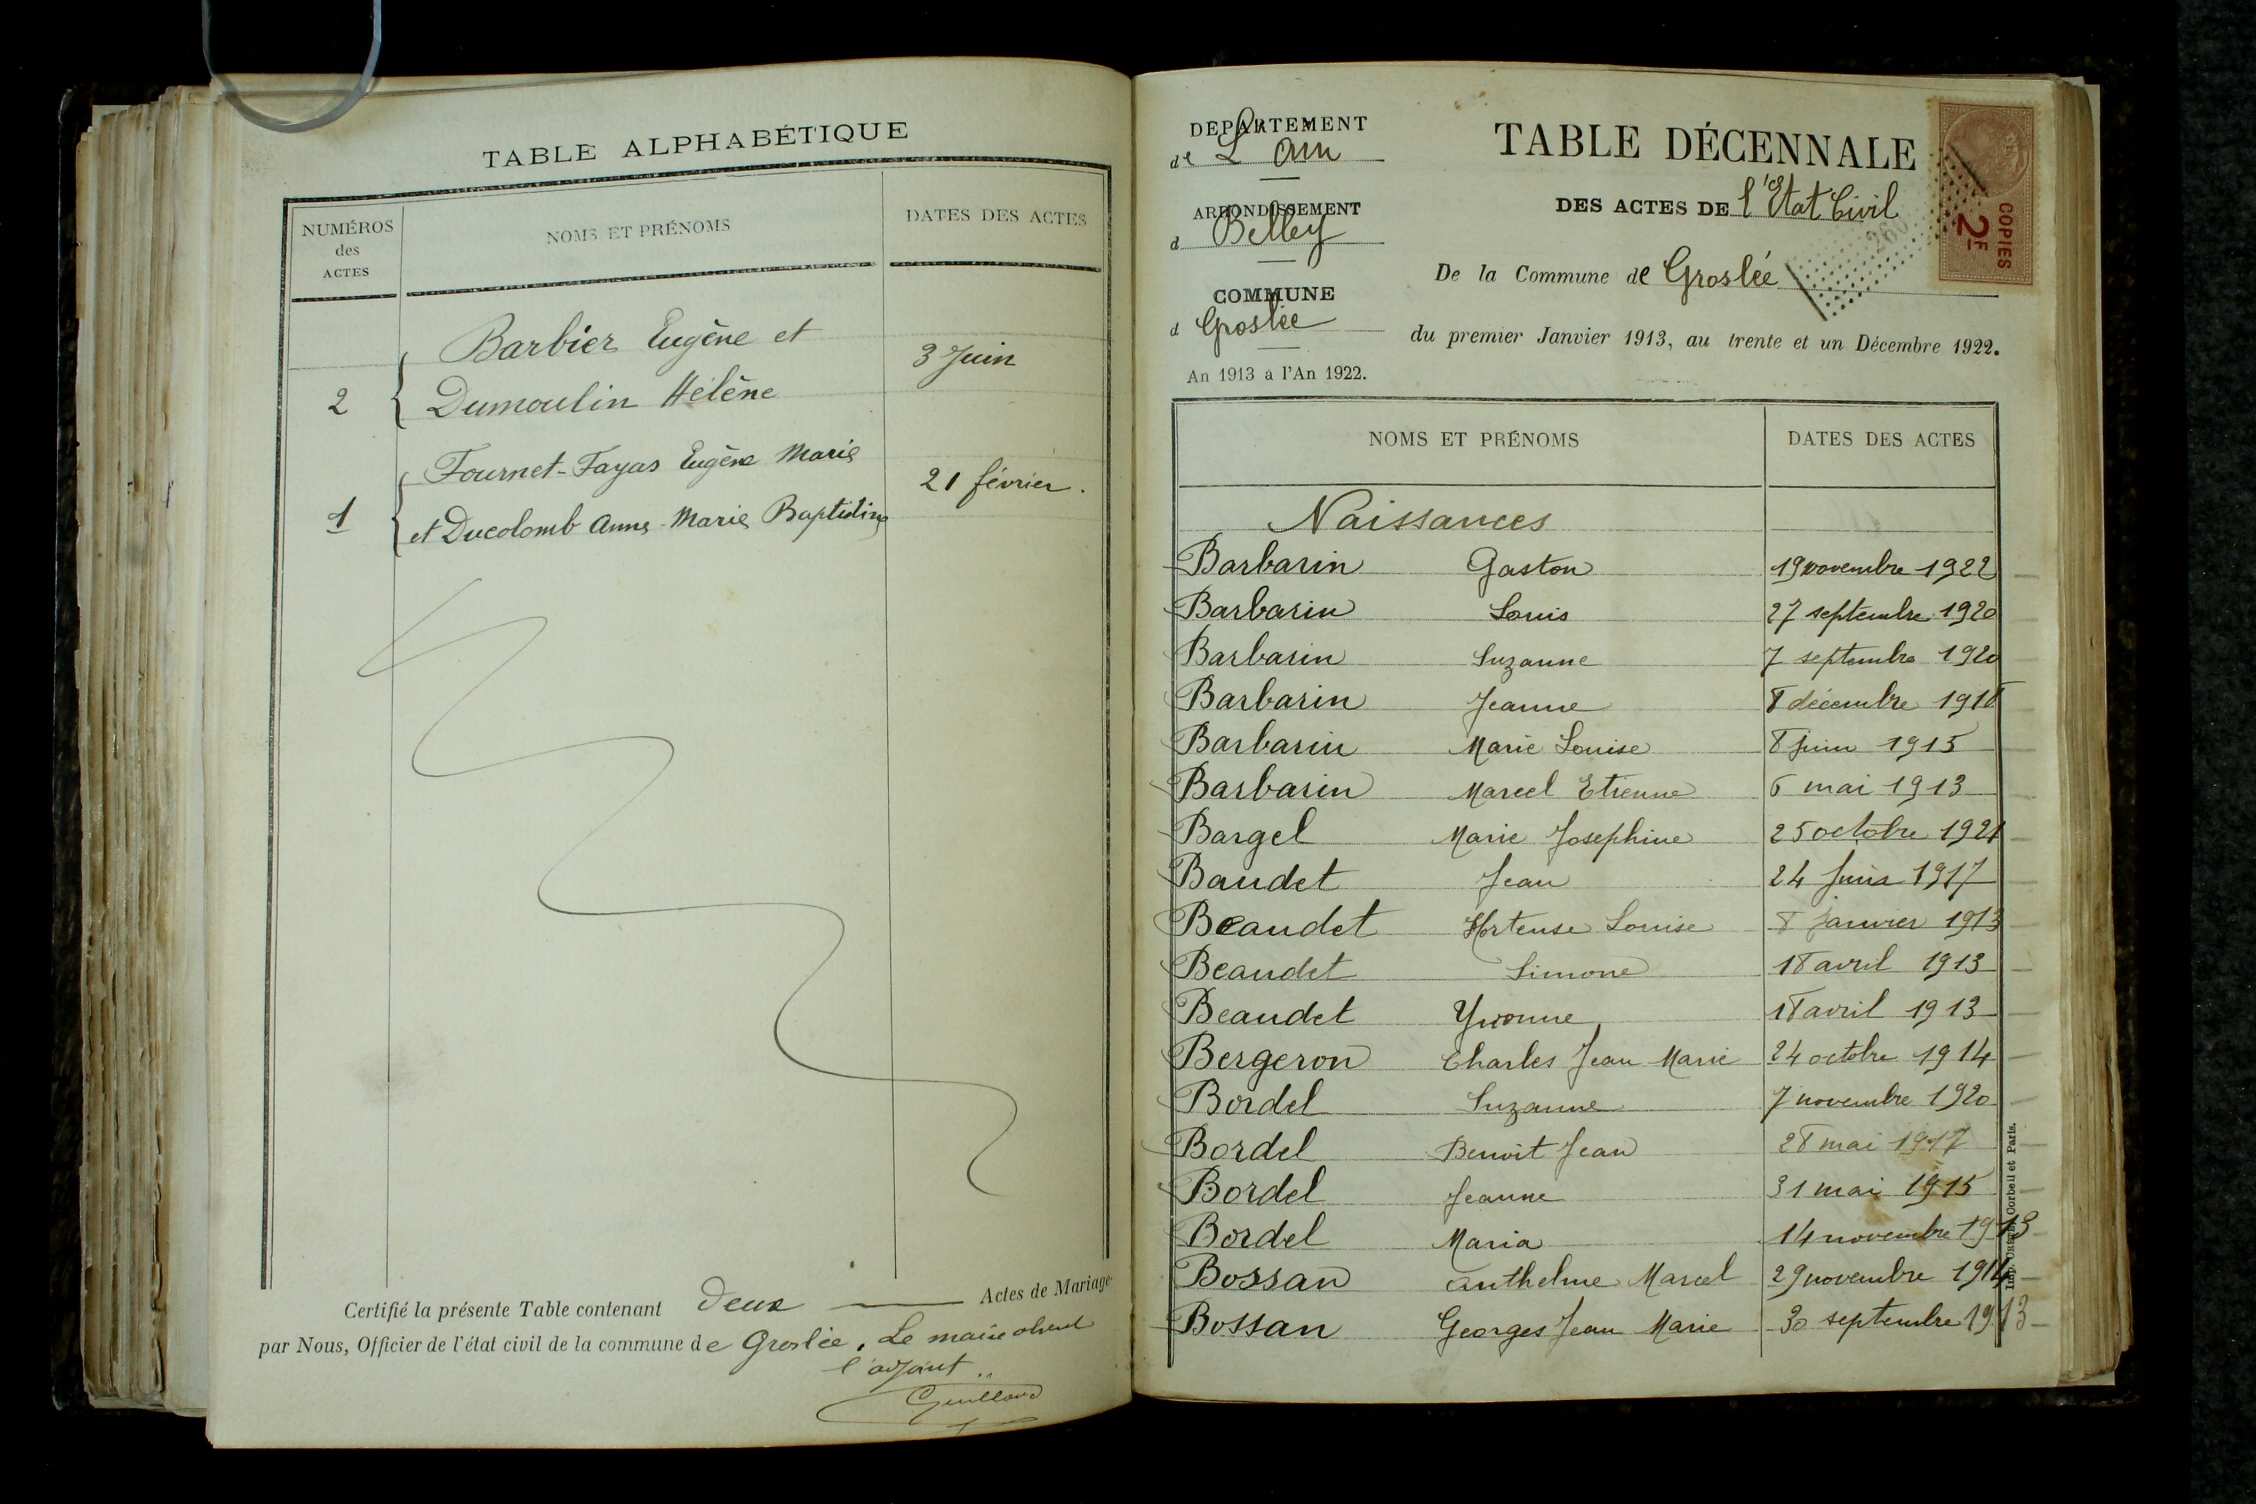 TABLE ALPHABÉTIQUE
NUMÉROS
des
ACTES
NOMS ET PRÉNOMS
DATES DES ACTES
Barbier Eugène et
3 Juin
2
Dumoulin Hélène
Fournet-Fayas Eugène Marie
21 février.
1
et Ducolomb Anne-Marie Baptistine
Certifié la présente Table contenant deux Actes de Mariage
par Nous, Officier de l'état civil de la commune de Groslée. Le maire absent
l'adjoint
DEPARTEMENT
de L'Ain
ARRONDISSEMENT
d Belley
COMMUNE
d Groslée
An 1913 à l'An 1922.
TABLE DÉCENNALE
DES ACTES DE l'Etat Civil
De la Commune de Groslée
du premier Janvier 1913, au trente et un Décembre 1922.
COPIES
2F
NOMS ET PRÉNOMS
DATES DES ACTES
Naissances
Barbarin Gaston 19 novembre 1922
Barbarin Louis 27 septembre 1920
Barbarin Suzanne 7 septembre 1920
Barbarin Jeanne 8 décembre 1918
Barbarin Marie Louise 8 juin 1915
Barbarin Marcel Etienne 6 mai 1913
Bargel Marie Josephine 25 octobre 1921
Baudet Jean 24 juin 1917
Beaudet Hortense Louise 8 janvier 1913
Beaudet Simone 18 avril 1913
Beaudet Yvonne 18 avril 1913
Bergeron Charles Jean Marie 24 octobre 1914
Bordel Suzanne 7 novembre 1920
Bordel Benoit Jean 28 mai 1917
Bordel Jeanne 31 mai 1915
Bordel Maria 14 novembre 1913
Bossan Anthelme Marcel 29 novembre 1914
Bossan Georges Jean Marie 30 septembre 1913
Corbeil et Paris.